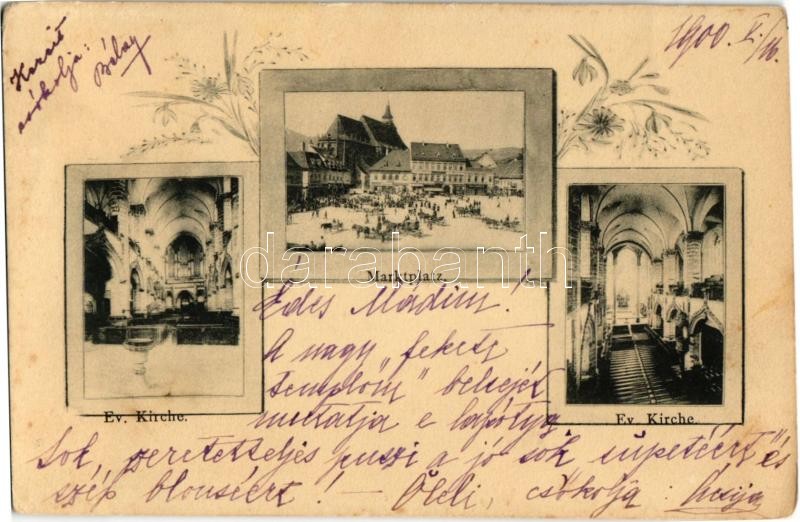 Kezeit
csókolja:
Bélay
1900. X/16.
Marktplatz.
Ev. Kirche.
Ev. Kirche.
darabanth
Édes Mádim!
A nagy „fekete
templom" belsejét
mutatja e lapótya
Sok, szeretetteljes puszi a jó sok és
szép blouseért! – Öleli, csókolja: